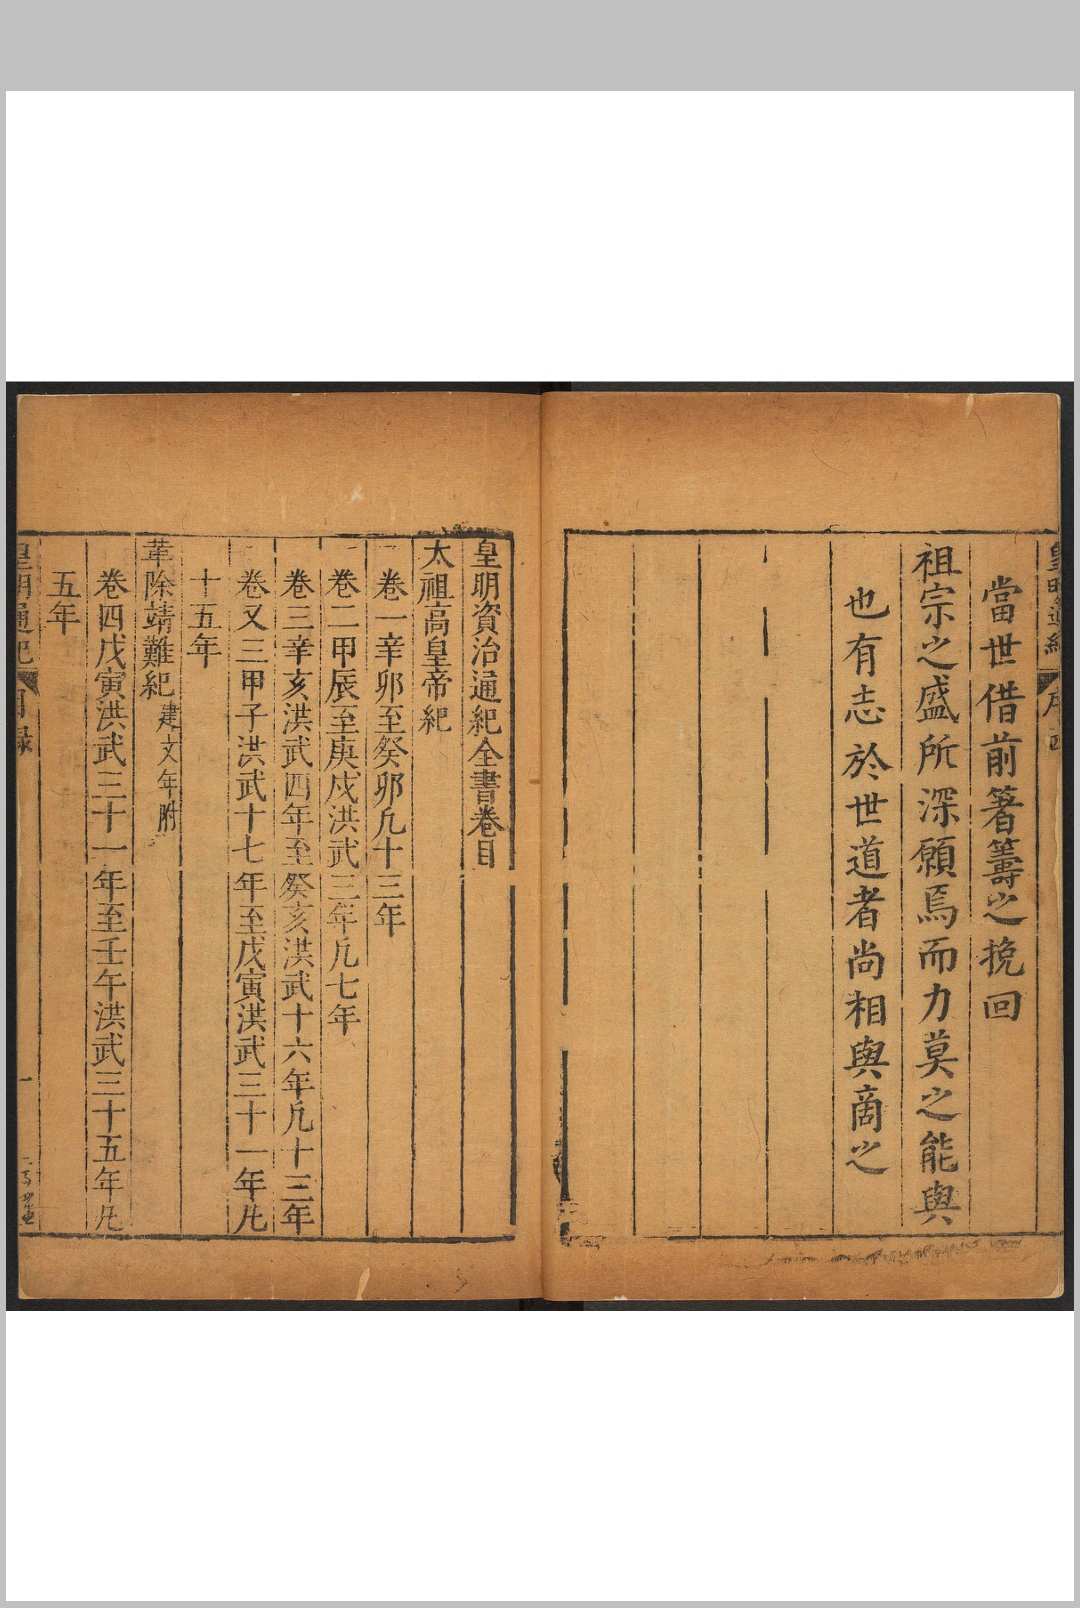 皇明通紀
序
四
當世借前箸籌之挽回
祖宗之盛所深願焉而力莫之能與
也有志於世道者尚相與商之
皇明資治通紀全書卷目
太祖高皇帝紀
卷一辛卯至癸卯凡十三年
卷二甲辰至庚戌洪武三年凡七年
卷三辛亥洪武四年至癸亥洪武十六年凡十三年
卷又三甲子洪武十七年至戊寅洪武三十一年凡
十五年
革除靖難紀建文年附
卷四戊寅洪武三十一年至壬午洪武三十五年凡
五年
皇明通紀
目録
一